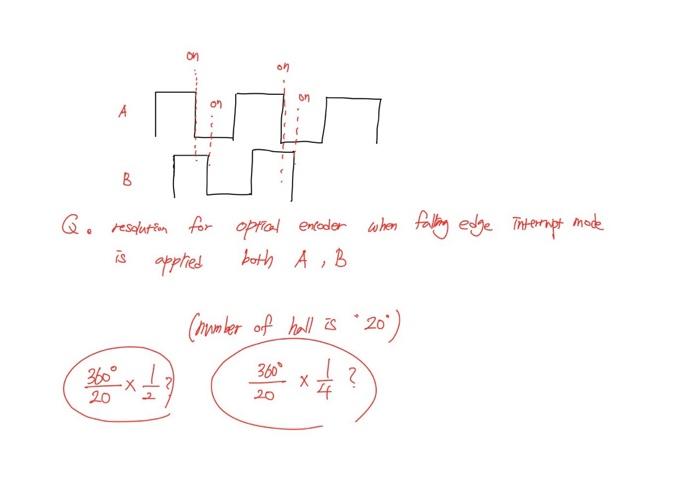 on
on
on
on
A
B
Q. resolution for optical encoder when falling edge interrupt mode
is applied both A, B
(number of hall is "20")
360°/20 × 1/2 ? 360°/20 × 1/4 ?